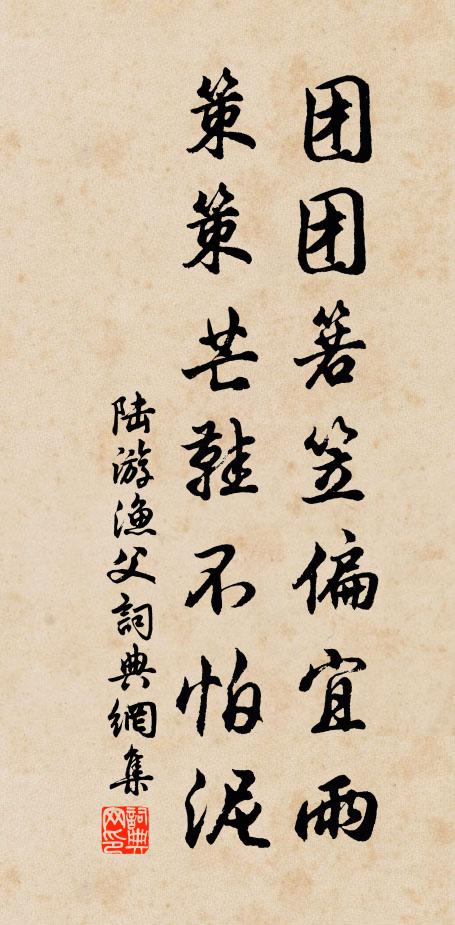 团团箬笠偏宜雨
策策芒鞋不怕泥
陆游渔父詞典網集
詞典网印